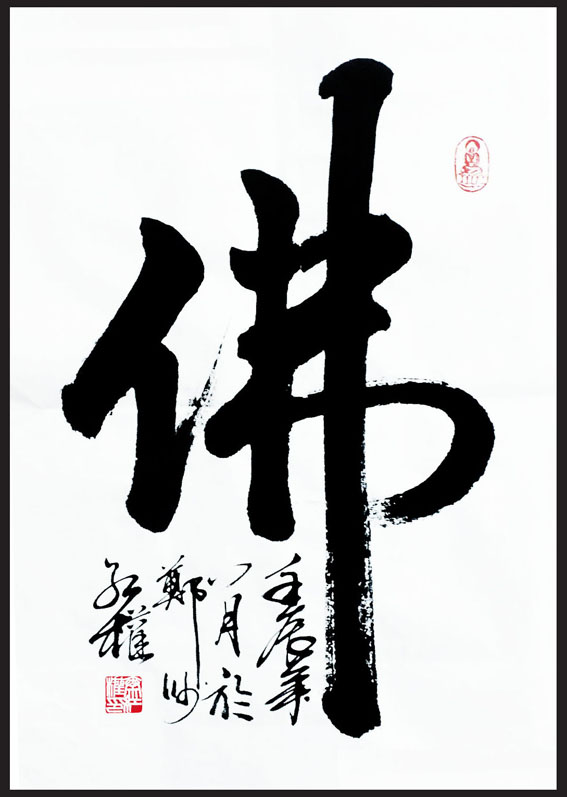 佛
壬辰年
八月於
鄭州
權